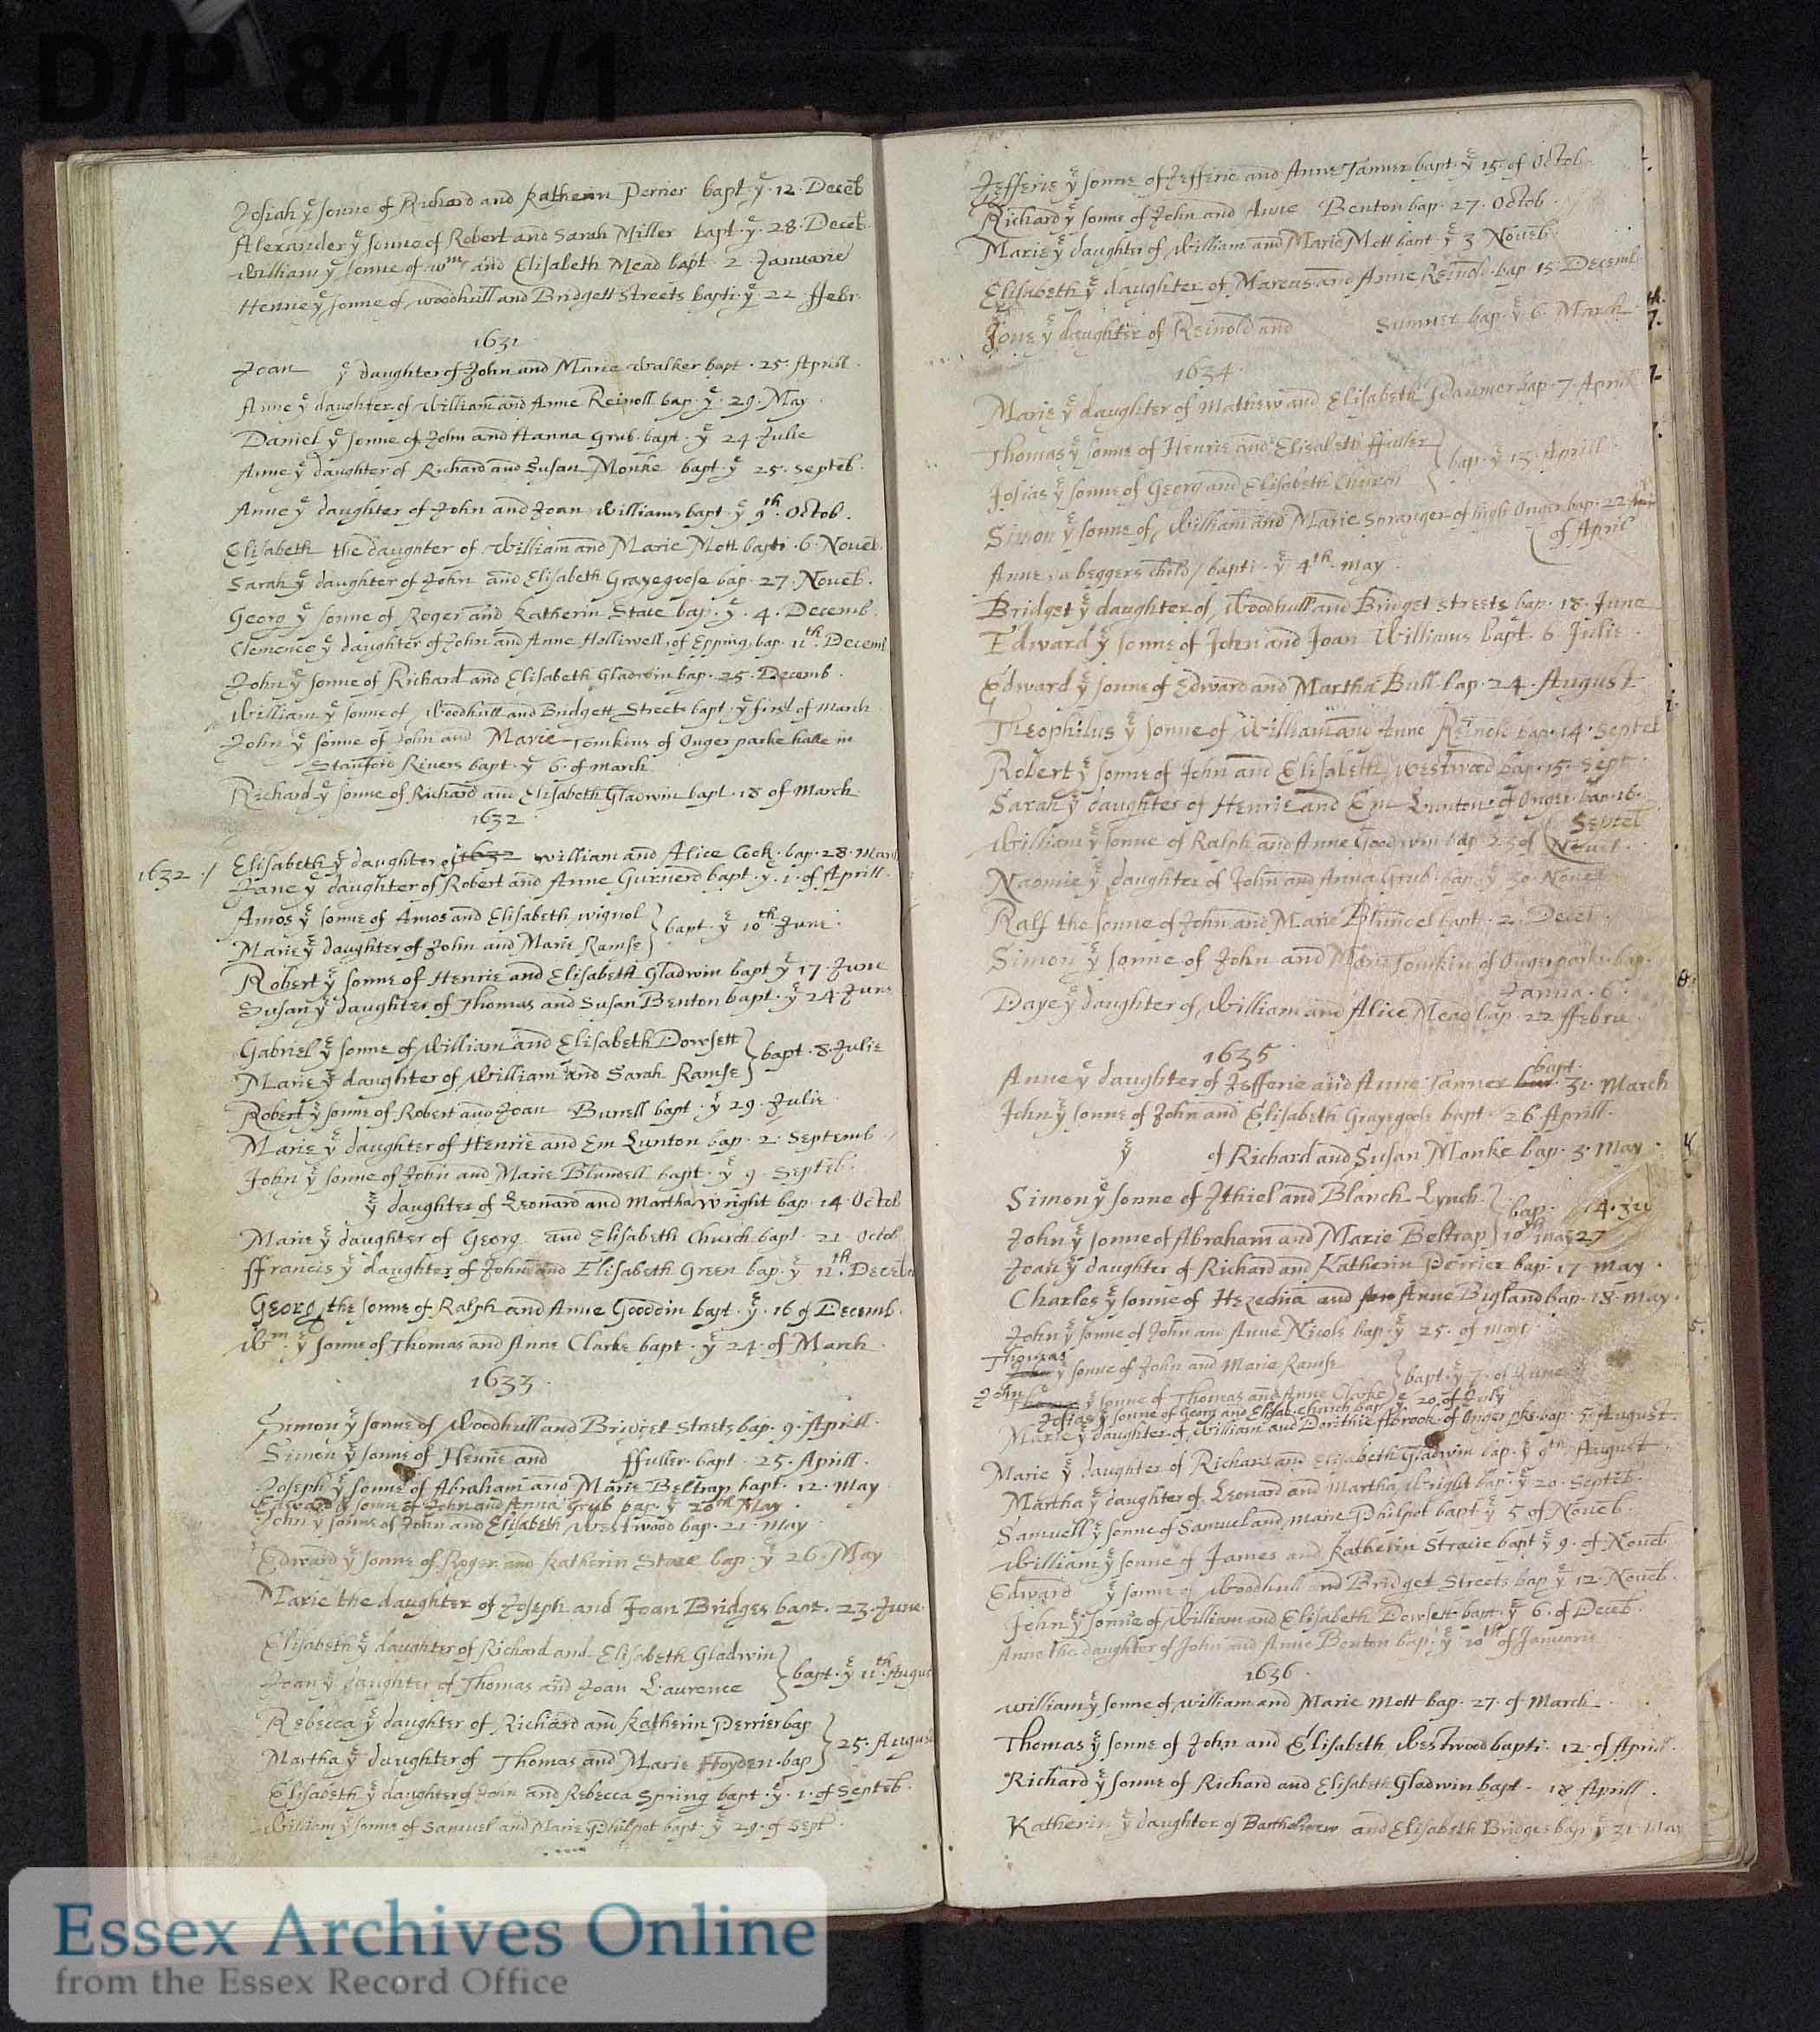 D/P 84/1/1
Josiah yᵉ sonne of Richard and Katherin Perrier bapt yᵉ 12. Deceb
Alexander yᵉ sonne of Robert and Sarah Miller bapt. yᵉ 28. Deceb.
William yᵉ sonne of wᵐ and Elisabeth Mead bapt. 2 Januarie
Henrie yᵉ sonne of woodhull and Bridgett Streets bapti. yᵉ 22 ffebr.
1631
Joan yᵉ daughter of John and Marie Walker bapt. 25. Aprill.
Anne yᵉ daughter of William and Anne Reinoll bap. yᵉ. 29. May.
Daniel yᵉ sonne of John and Hanna Grub. bapt. yᵉ 24 Julie
Anne yᵉ daughter of Richard and Susan Monke bapt. yᵉ 25. Septeb.
Anne yᵉ daughter of John and Joan Williams bapt. yᵉ 9ᵗʰ. Octob.
Elisabeth the daughter of William and Marie Mott bapti. 6. Noueb.
Sarah yᵉ daughter of John and Elisabeth Grayegoose bap. 27. Noueb.
Georg yᵉ sonne of Roger and Katherin Stace bap. yᵉ. 4. Decemb.
Clemence yᵉ daughter of John and Anne Holliwell, of Epping, bap. 11ᵗʰ. Decemb
John yᵉ sonne of Richard and Elisabeth Gladwin bap. 25. Decemb.
William yᵉ sonne of Woodhull and Bridgett Streets bapt. yᵉ first of March
John yᵉ sonne of John and Marie Tomkins of Onger parke halle in
Stanford Rivers bapt. yᵉ 6. of march
Richard yᵉ sonne of Richard and Elisabeth Gladwin bapt. 18 of March
1632
1632. / Elisabeth yᵉ daughter of 1632 William and Alice Cock. bap. 28. Marc
Jane yᵉ daughter of Robert and Anne Gurnerd bapt. y. 1. of Aprill.
Amos yᵉ sonne of Amos and Elisabeth wignol
Marie yᵉ daughter of John and Marie Ramse } bapt. yᵉ 10ᵗʰ June.
Robert yᵉ sonne of Henrie and Elisabeth Gladwin bapt yᵉ 17. June
Susan yᵉ daughter of Thomas and Susan Benton bapt. yᵉ 24 June
Gabriel yᵉ sonne of William and Elisabeth Dowsett
Marie yᵉ daughter of William and Sarah Ramse } bapt. 8. Julie
Robert yᵉ sonne of Robert and Joan Burell bapt. yᵉ 29. Julie
Marie yᵉ daughter of Henrie and Em Lunton bap. 2. Septemb.
John yᵉ sonne of John and Marie Blundell bapt. yᵉ 9. Septeb.
yᵉ daughter of Leonard and Martha Wright bap. 14 Octob
Marie yᵉ daughter of Georg and Elisabeth Church bapt. 21 Octob
ffrancis yᵉ daughter of John and Elisabeth Green bap. yᵉ 11ᵗʰ. Deceb
Georg the sonne of Ralph and Anne Gooddin bapt. yᵉ. 16 of Decemb.
Wᵐ. yᵉ sonne of Thomas and Anne Clarke bapt. yᵉ 24. of March.
1633.
Simon yᵉ sonne of Woodhull and Bridget Streets bap. 9. Aprill.
Simon yᵉ sonne of Henrie and ffuller. bapt. 25. Aprill.
Joseph yᵉ sonne of Abraham and Marie Beltrap bapt. 12. May
Edward yᵉ sonne of John and Anna Grub bap. yᵉ 20ᵗʰ May.
John yᵉ sonne of John and Elisabeth Westwood bap. 21. May
Edward yᵉ sonne of Roger and Katherin Stace bap. yᵉ 26. May
Marie the daughter of Joseph and Joan Bridges bapt. 23. June.
Elisabeth yᵉ daughter of Richard and Elisabeth Gladwin
Joan yᵉ daughter of Thomas and Joan Laurence } bapt. yᵉ 11ᵗʰ. August
Rebecca yᵉ daughter of Richard and Katherin Perrier bap
Martha yᵉ daughter of Thomas and Marie Hoyden. bap } 25. August
Elisabeth yᵉ daughter of John and Rebecca Spring bapt. yᵉ. 1. of Septeb.
William yᵉ sonne of Samuel and Marie Philpot bapt. yᵉ 29. of Sept.
Jefferie yᵉ sonne of Jefferie and Anne Tanner bapt. yᵉ 15. of Octob.
Richard yᵉ sonne of John and Anne Benton bap. 27. Octob.
Marie yᵉ daughter of William and Marie Mott bapt yᵉ 3 Noueb.
Elisabeth yᵉ daughter of Marcus and Anne Reinol. bap. 15. Decemb.
Jone yᵉ daughter of Reinold and Sumner bap. yᵉ 6. March.
1634.
Marie yᵉ daughter of Mathew and Elisabeth Paumer bap. 7. Aprill
Thomas yᵉ sonne of Henrie and Elisabeth ffuller
Josias yᵉ sonne of Georg and Elisabeth Church } bap. yᵉ 13. Aprill.
Simon yᵉ sonne of William and Marie Spranger of high Onger bap. 22
of April
Anne, a beggers child / bapti. yᵉ 4ᵗʰ. may.
Bridget yᵉ daughter of Woodhull and Bridget streets bap. 18. June
Edward yᵉ sonne of John and Joan Williams bapt. 6 Julie.
Edward yᵉ sonne of Edward and Martha Bull bap. 24. August
Theophilus yᵉ sonne of William and Anne Reinolls bap. 14. Septeb
Robert yᵉ sonne of John and Elisabeth Westwood bap. 15. Sept.
Sarah yᵉ daughter of Henrie and Em Lunton of Onger. bap. 16.
Septeb
William yᵉ sonne of Ralph and Anne Goodwin bap 23 of Noueb.
Naomie yᵉ daughter of John and Anna Grub. bap. yᵉ 30. Noueb
Ralf the sonne of John and Marie bapt. 2. Deceb.
Simon yᵉ sonne of John and Marie Tomkin of Onger parke. bap.
Janua. 6.
Daye yᵉ daughter of William and Alice Mead bap. 22 ffebru.
1635.
bapt.
Anne yᵉ daughter of Jefferie and Anne Tanner 31. March
John yᵉ sonne of John and Elisabeth Grayegoose bapt. 26. Aprill.
yᵉ of Richard and Susan Monke bap. 3. May
Simon yᵉ sonne of Ithiel and Blanch Lynch
John yᵉ sonne of Abraham and Marie Beltrap } bap. 10ᵗʰ may
Joan yᵉ daughter of Richard and Katherin Perrier bap. 17 may.
Charles yᵉ sonne of Hezechia and Anne Bigland bap. 18. may.
John yᵉ sonne of John and Anne Nicols bap. yᵉ 25. of may
Thomas
John yᵉ sonne of John and Marie Ramse
John yᵉ sonne of Thomas and Anne Clarke } bapt. yᵉ 7. of June
Josias yᵉ sonne of Georg and Elisab. Church bap. yᵉ 20 of July
Marie yᵉ daughter of William and Dorithie Abrook. of Onger pke. bap. 5. August.
Marie yᵉ daughter of Richard and Elisabeth Gladwin bap. yᵉ 9ᵗʰ August.
Martha yᵉ daughter of Leonard and Martha Wright bap. yᵉ 20. Septeb.
Samuell yᵉ sonne of Samuel and Marie Philpot bapt yᵉ 5 of Noueb.
William yᵉ sonne of James and Katherin Straue bapt yᵉ 9. of Noueb
Edward yᵉ sonne of Woodhull and Bridget Streets bap yᵉ 12. Noueb.
John yᵉ sonne of William and Elisabeth Dowsett bapt. yᵉ 6. of Deceb.
Anne the daughter of John and Anne Benton bap. yᵉ 10ᵗʰ of Januarie
1636.
William yᵉ sonne of William and Marie Mott bap. 27. of March.
Thomas yᵉ sonne of John and Elisabeth Westwood bapti. 12. of Aprill.
Richard yᵉ sonne of Richard and Elisabeth Gladwin bapt. 18 Aprill.
Katherin yᵉ daughter of Bartholmew and Elisabeth Bridges bap. yᵉ 21. May
Essex Archives Online
from the Essex Record Office